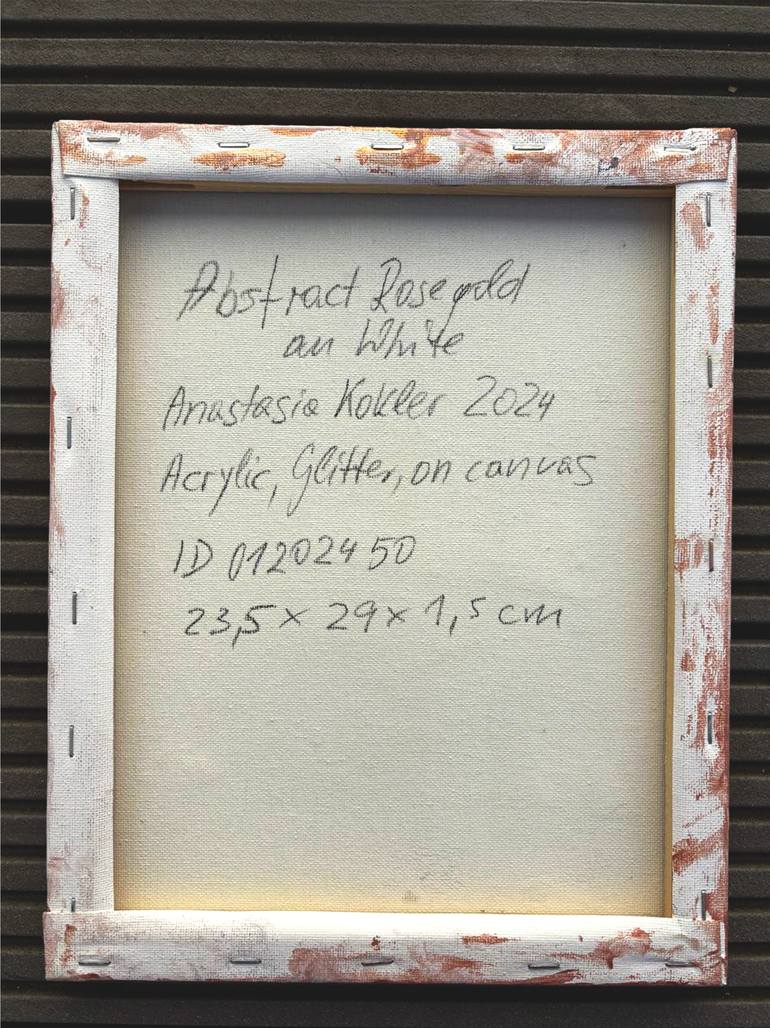 Abstract Rosegold
an White
Anastasia Kokler 2024
Acrylic, Glitter, on canvas
ID 012024 50
23,5 x 29 x 1,5 cm